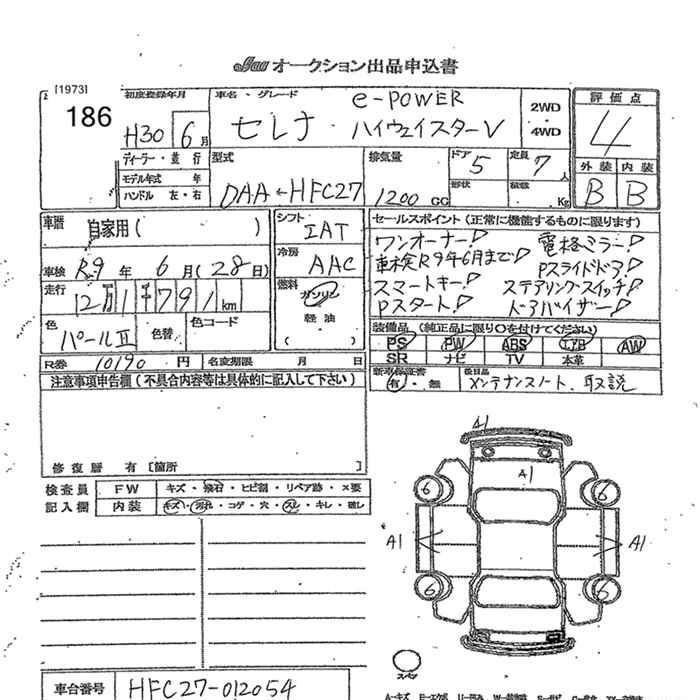 JAA オークション出品申込書
[1973]
186
初度登録年月
H30 6月
車名・グレード
e-POWER
セレナ ハイウェイスターV
2WD
・
4WD
評価点
4
外装 内装
B B
ディーラー・並行
モデル年式 年
ハンドル 左・右
型式
DAA-HFC27
排気量
1200 CC
ドア 5
形状
定員 7人
積載 Kg
車歴 自家用( )
車検 R9年6月(28日)
走行 12万1千791km
色 パールⅡ 色替 色コード
シフト
IAT
冷房
AAC
燃料
ガソリン
軽油
( )
セールスポイント(正常に機能するものに限ります)
ワンオーナー! 電格ミラー!
車検R9年6月まで! Pスライドドア!
スマートキー! ステアリングスイッチ!
Pスタート! ドアバイザー!
装備品(純正品に限り○を付けてください)
PS PW ABS エアB AW
SR ナビ TV 本革
新車保証書
有・無
後日品
メンテナンスノート、取説
R券 10190円 名変期限 月 日
注意事項申告欄(不具合内容等は具体的に記入して下さい)
修復歴 有 [箇所 ]
検査員
記入欄
FW キズ・飛石・ヒビ割・リペア跡・×要
内装 キズ・汚れ・コゲ・穴・スレ・キレ・破レ
A1
A1
6 6
A1 A1
6 6
スペア
車台番号 HFC27-012054